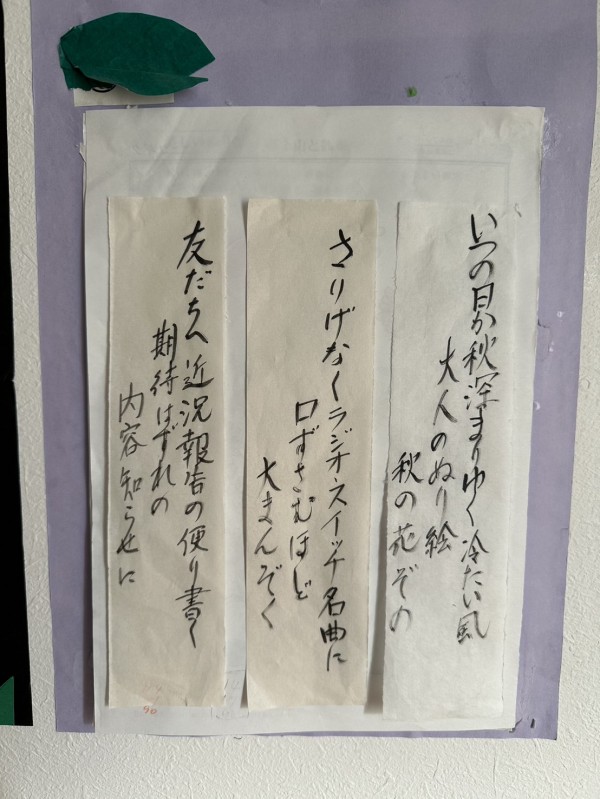 いつの日か秋深まりゆく冷たい風
大人のぬり絵
秋の花ぞの
さりげなくラジオスイッチ名曲に
口ずさむほど
大まんぞく
友だちへ近況報告の便り書く
期待はずれの
内容知らせに